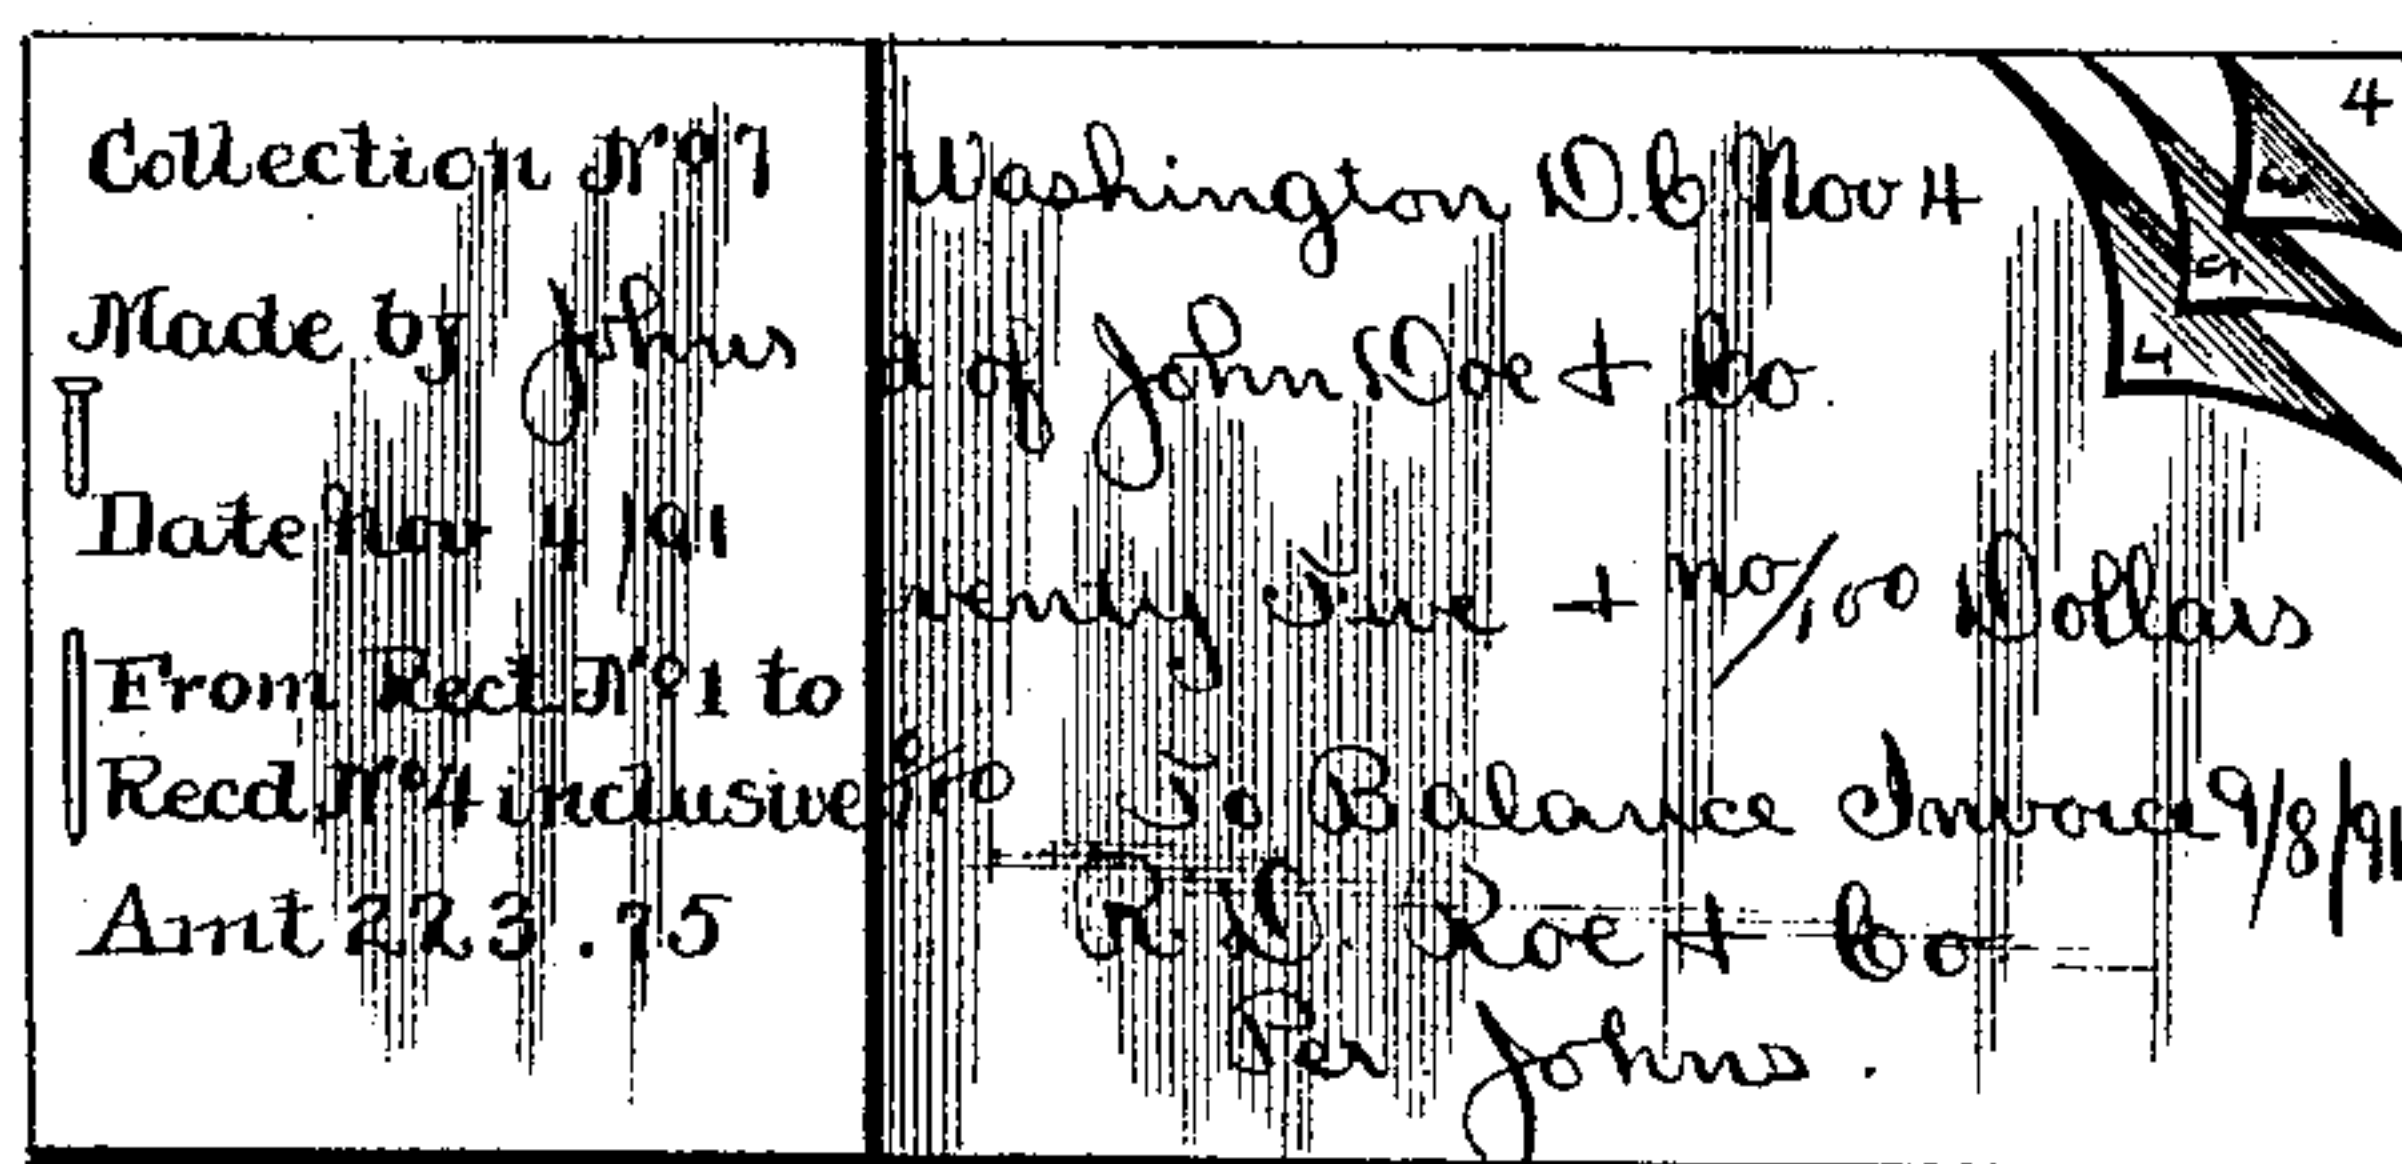 Collection No 7
Made by Johns
Date Nov 4/91
From Rect No 1 to
Recd No 4 inclusive
Amt 223.75
Washington D.C. Nov 4
d of John Doe + Co.
wenty Five + no/100 Dollars
/100 To Balance Invoice 9/8/91
R. C. Roe + Co
Per Johns.
4
3
2
1